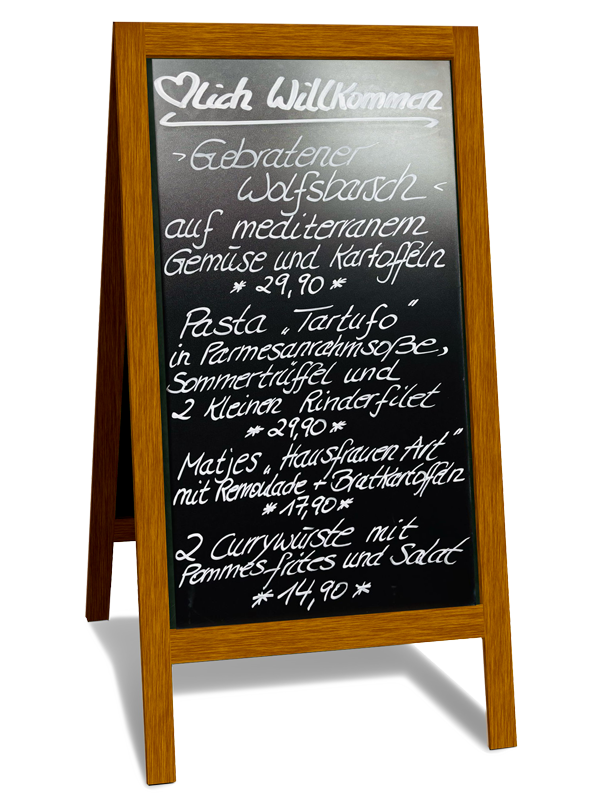 ♥lich Willkommen
> Gebratener
Wolfsbarsch <
auf mediterranem
Gemüse und Kartoffeln
* 29,90 *
Pasta „Tartufo“
in Parmesanrahmsoße,
Sommertrüffel und
2 kleinen Rinderfilet
* 29,90 *
Matjes „Hausfrauen Art“
mit Remoulade + Bratkartoffeln
* 17,90 *
2 Currywürste mit
Pommes frites und Salat
* 14,90 *